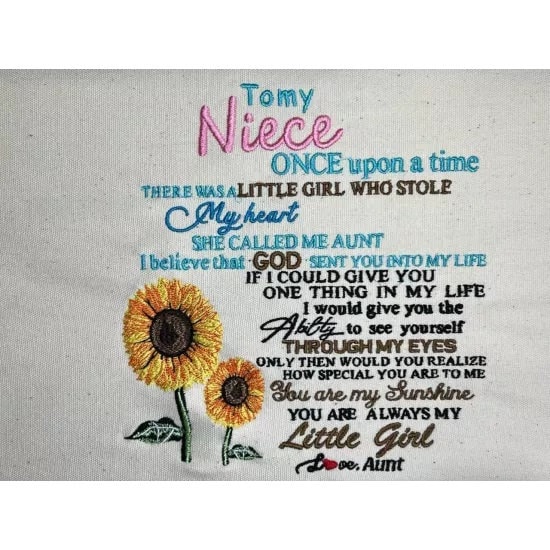 Tomy
Niece
ONCE upon a time
THERE WAS A LITTLE GIRL WHO STOLE
My heart
SHE CALLED ME AUNT
I believe that GOD SENT YOU INTO MY LIFE
IF I COULD GIVE YOU
ONE THING IN MY LIFE
I would give you the
Ability to see yourself
THROUGH MY EYES
ONLY THEN WOULD YOU REALIZE
HOW SPECIAL YOU ARE TO ME
You are my Sunshine
YOU ARE ALWAYS MY
Little Girl
Love, Aunt